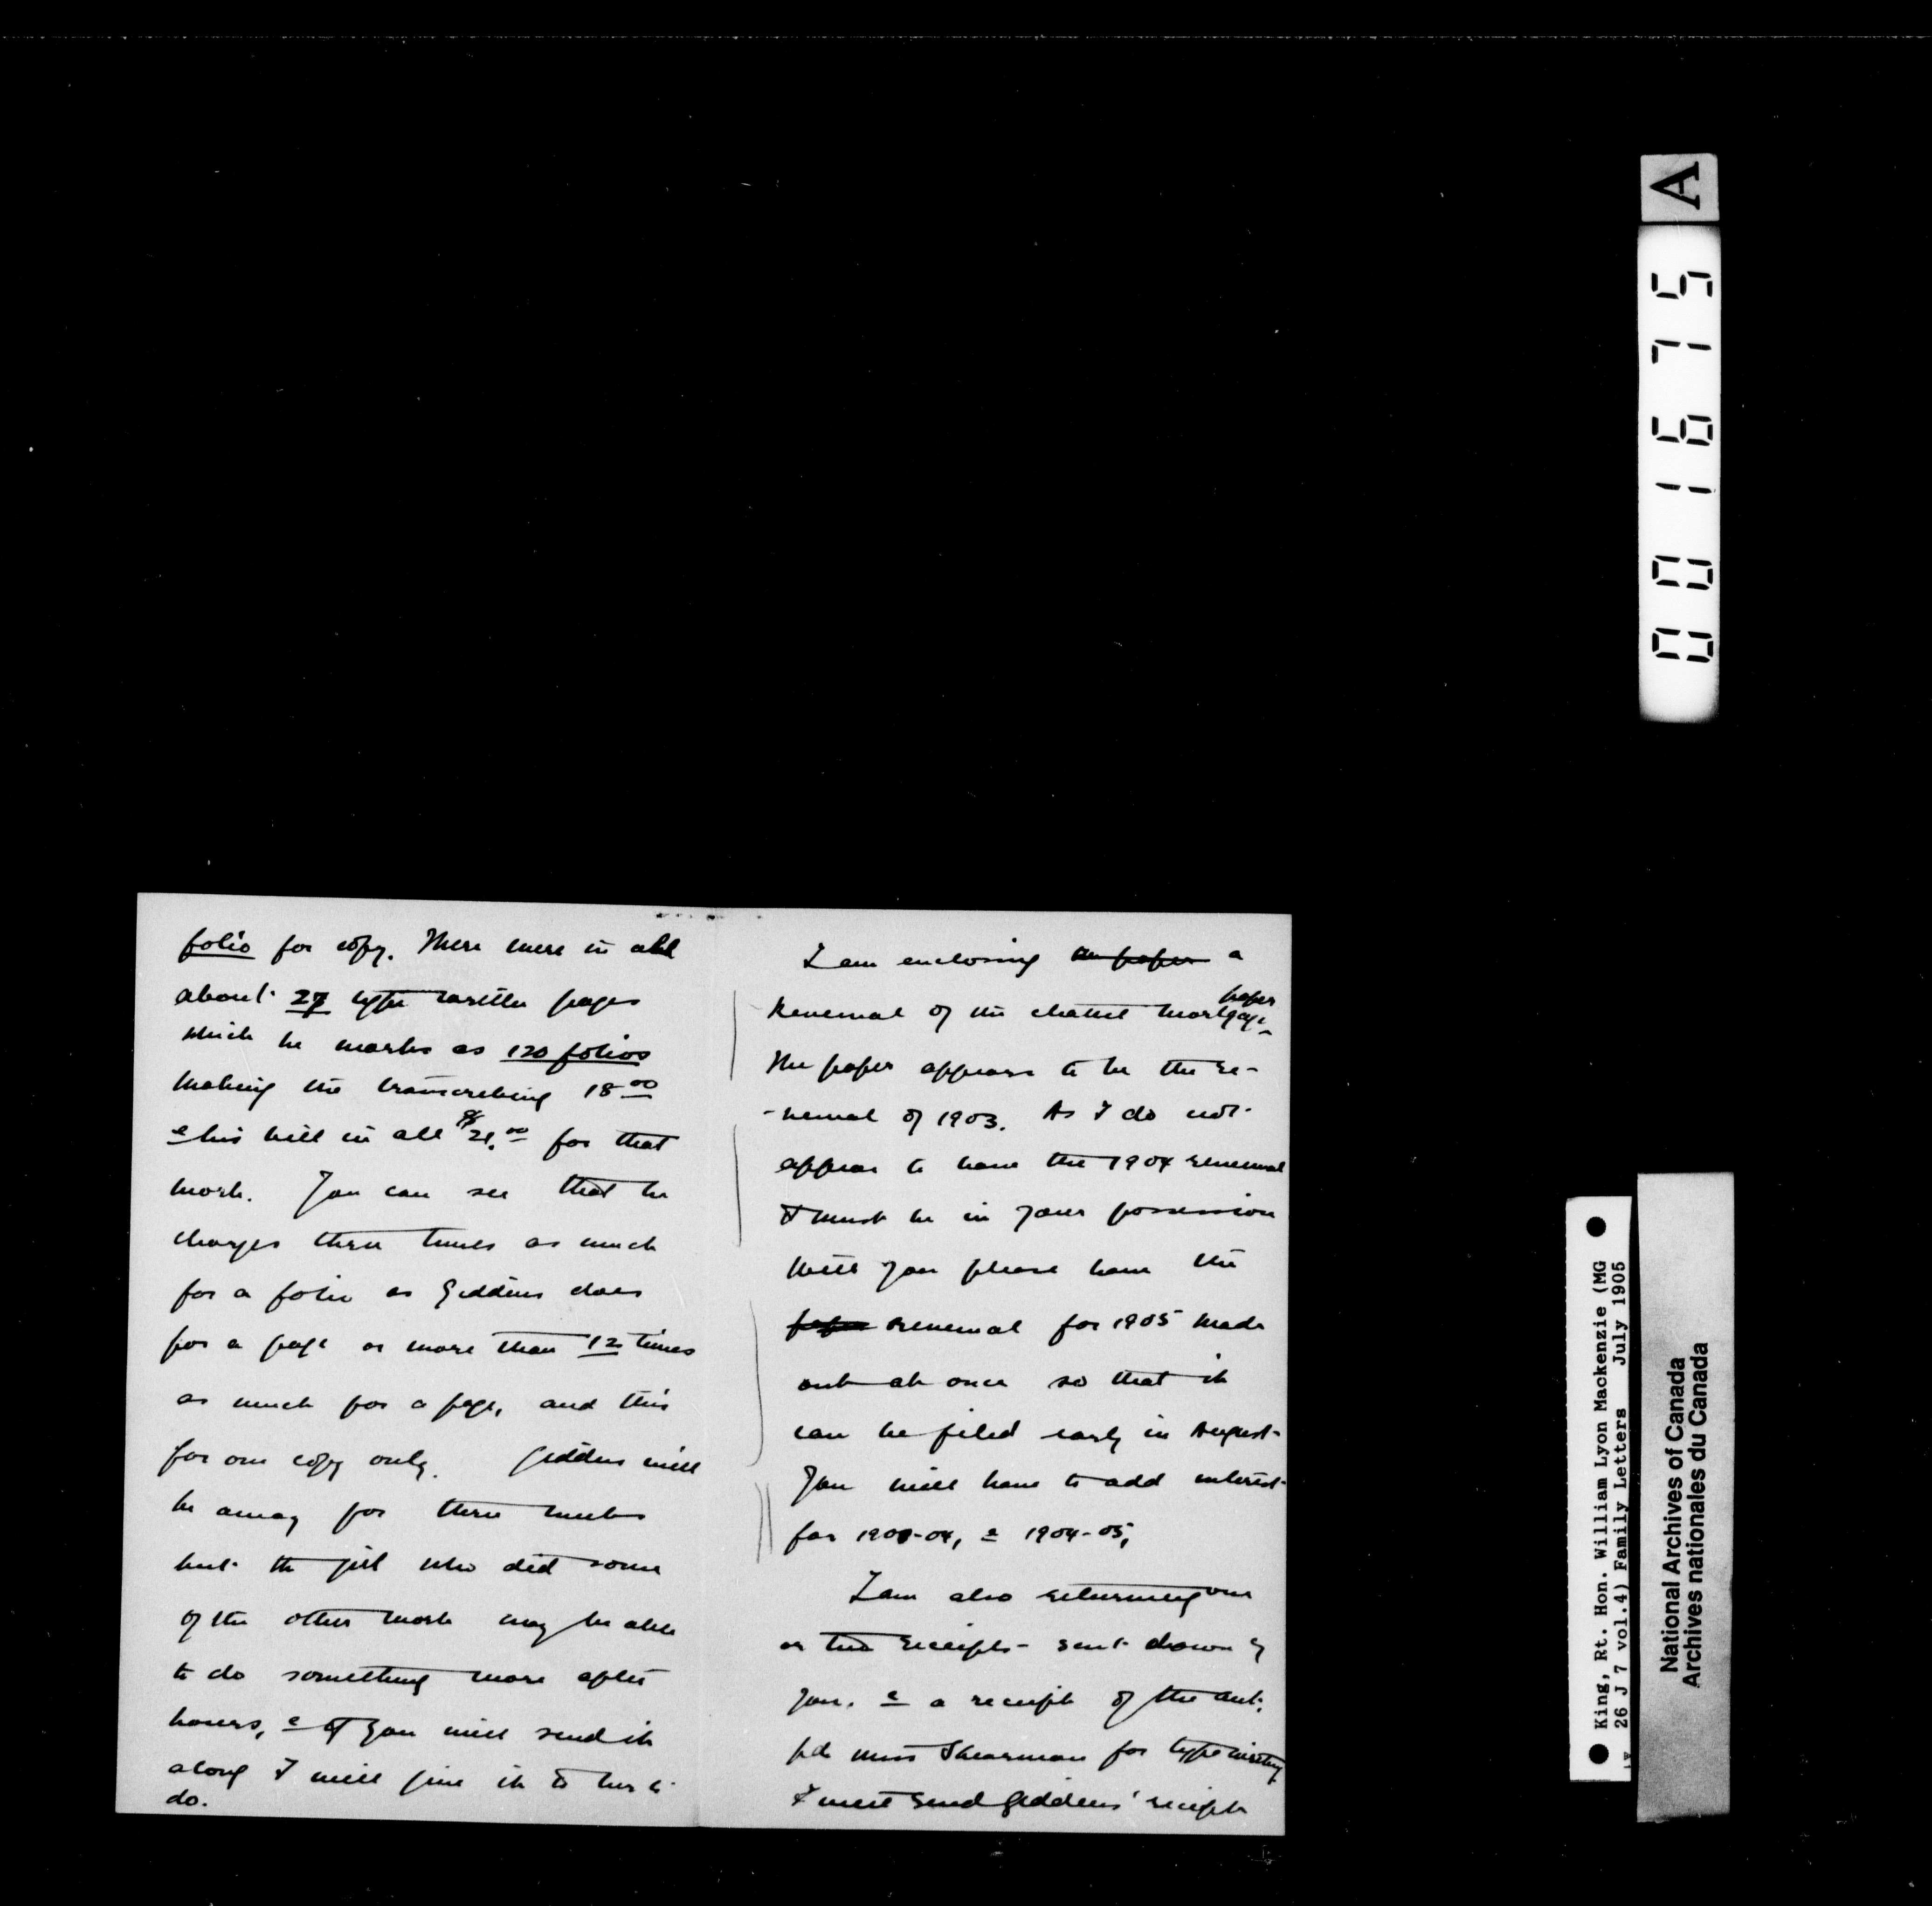 folio for copy. There were in all
about 27 type written pages
which he marks as 120 folios
making the transcribing 18.00
& his bill in all $21.00 for that
work. You can see that he
charges three times as much
for a folio as Giddens does
for a page or more than 12 times
as much for a page, and this
for one copy only. Giddens will
be away for three weeks
but the girl who did some
of the other work may be able
to do something more after
hours, & if you will send it
along I will give it to her to
do.
I am enclosing an paper a
paper
Renewal of the chattel mortgage
The paper appears to be the re-
-newal of 1903. As I do not
appear to have the 1904 renewal
it must be in your possession
Will you please have the
paper renewal for 1905 made
out at once so that it
can be filed early in August.
You will have to add interest
for 1903-04, & 1904-05,
I am also returning one
or two receipts sent down by
you. & a receipt of the amt.
pd. Miss Shearman for typewriting
I will send Giddens' receipt
A
001675
King, Rt. Hon. William Lyon Mackenzie (MG
26 J 7 vol.4) Family Letters July 1905
National Archives of Canada
Archives nationales du Canada